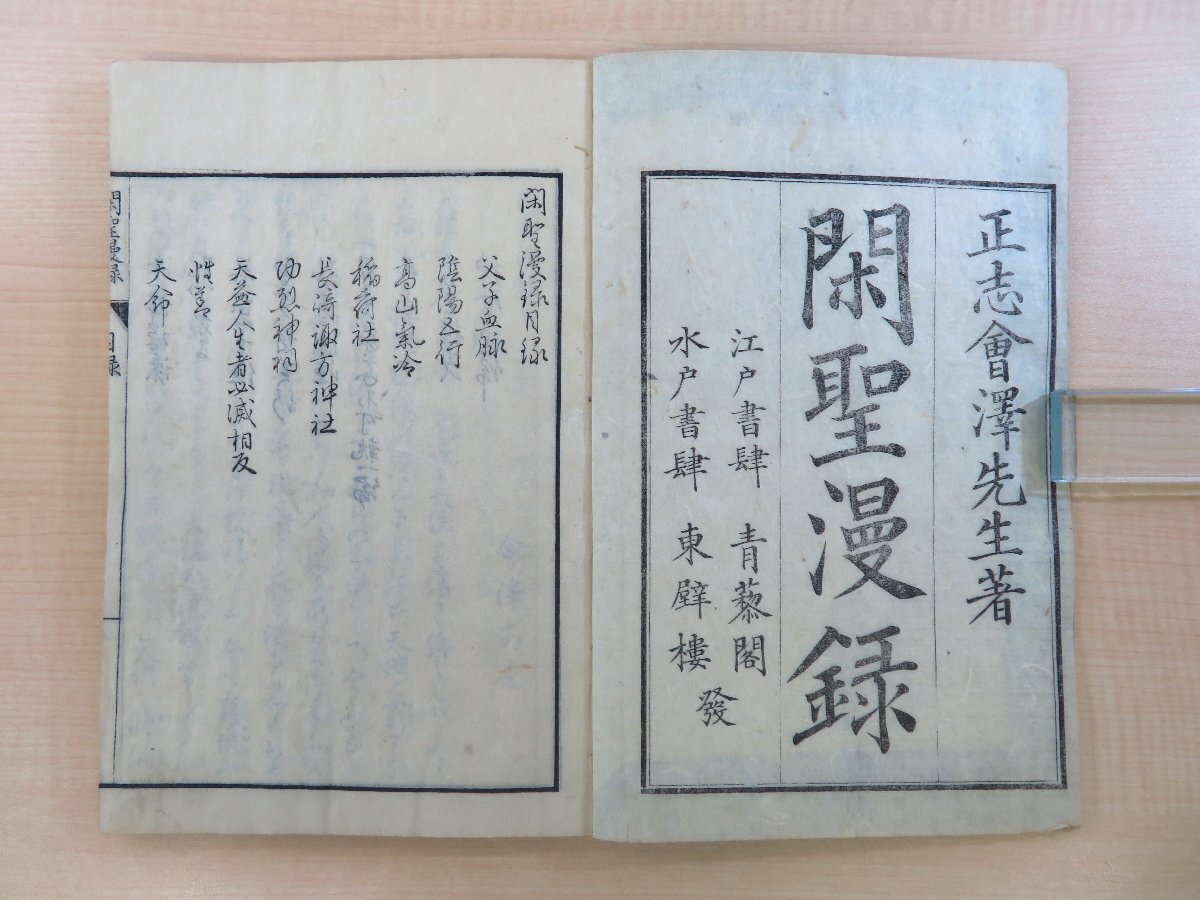 正志會澤先生著
閑聖漫録
江戸書肆 青藜閣
水戸書肆 東壁樓
發
閑聖漫録目録
父子血脉
陰陽五行
高山氣冷
稲荷社
長﨑諏方神社
功烈神祠
天益人生者必滅相反
性善
天命
閑聖漫録 目録